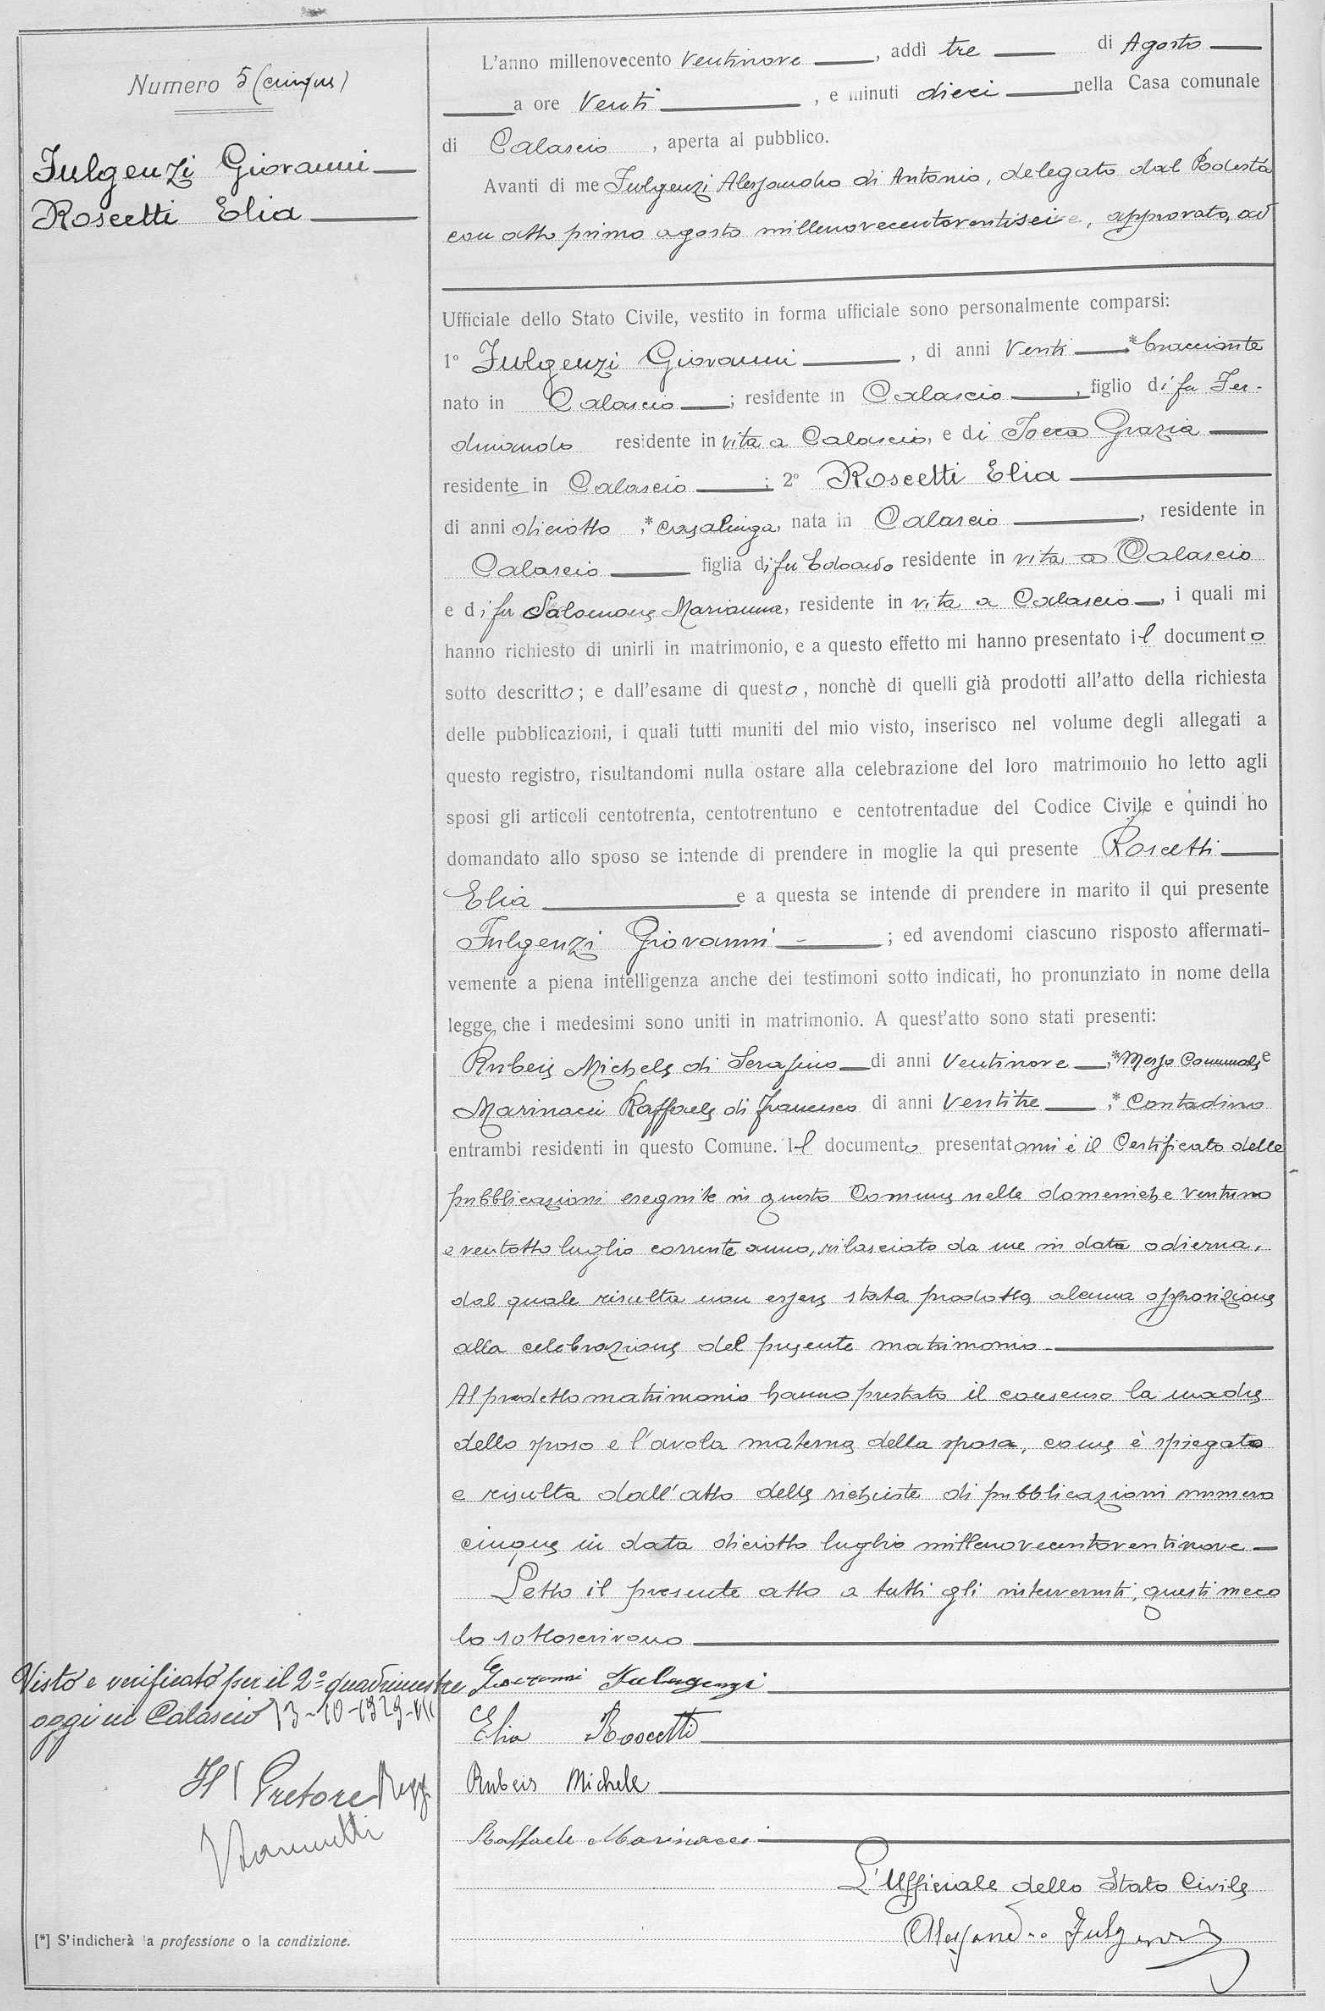 Numero 5 (cinque)
Fulgenzi Giovanni
Roscetti Elia
L'anno millenovecento ventinove, addì tre di Agosto
a ore venti, e minuti dieci nella Casa comunale
di Calascio, aperta al pubblico.
Avanti di me Fulgenzi Alessandro di Antonio, delegato dal Podestà
con atto primo agosto millenovecentoventisei, approvato, ad
Ufficiale dello Stato Civile, vestito in forma ufficiale sono personalmente comparsi:
1° Fulgenzi Giovanni, di anni venti * bracciante
nato in Calascio; residente in Calascio, figlio di fu Fer-
dinando residente in vita a Calascio, e di Tocca Grazia
residente in Calascio; 2° Roscetti Elia
di anni diciotto, * casalinga, nata in Calascio, residente in
Calascio figlia di fu Edoardo residente in vita a Calascio
e di fu Salomone Marianna, residente in vita a Calascio, i quali mi
hanno richiesto di unirli in matrimonio, e a questo effetto mi hanno presentato il documento
sotto descritto; e dall'esame di questo, nonchè di quelli già prodotti all'atto della richiesta
delle pubblicazioni, i quali tutti muniti del mio visto, inserisco nel volume degli allegati a
questo registro, risultandomi nulla ostare alla celebrazione del loro matrimonio ho letto agli
sposi gli articoli centotrenta, centotrentuno e centotrentadue del Codice Civile e quindi ho
domandato allo sposo se intende di prendere in moglie la qui presente Roscetti
Elia e a questa se intende di prendere in marito il qui presente
Fulgenzi Giovanni; ed avendomi ciascuno risposto affermati-
vemente a piena intelligenza anche dei testimoni sotto indicati, ho pronunziato in nome della
legge, che i medesimi sono uniti in matrimonio. A quest'atto sono stati presenti:
Rubeis Michele di Serafino di anni ventinove, * Messo Comunale e
Marinacci Raffaele di Francesco di anni ventitre, * Contadino
entrambi residenti in questo Comune. Il documento presentatomi è il Certificato delle
pubblicazioni eseguite in questo Comune nelle domeniche ventuno
e ventotto luglio corrente anno, rilasciato da me in data odierna,
dal quale risulta non essere stata prodotta alcuna opposizione
alla celebrazione del presente matrimonio.
Al predetto matrimonio hanno prestato il consenso la madre
dello sposo e l'avola materna della sposa, come è spiegato
e risulta dall'atto delle richieste di pubblicazioni numero
cinque in data diciotto luglio millenovecentoventinove
Letto il presente atto a tutti gli intervenuti, questi meco
lo sottoscrivono
Giovanni Fulgenzi
Elia Roscetti
Rubeis Michele
Raffaele Marinacci
L'Ufficiale dello Stato Civile
Alessandro Fulgenzi
Visto e verificato per il 2° quadrimestre
oggi in Calascio 13-10-1929-VII
Il Pretore Regg.
[*] S'indicherà la professione o la condizione.